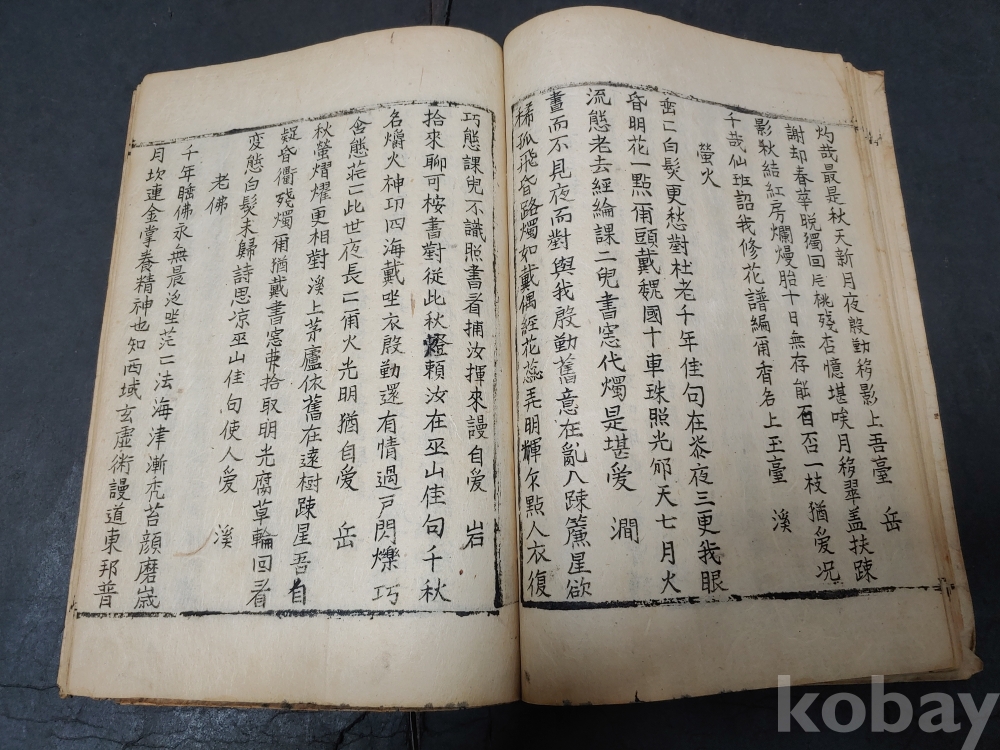 灼哉最是秋天新月夜殷勤移影上吾臺　岳
謝却春華脱獨回 桃殘杏憶堪唉月移翠盖扶踈
影秋結紅房爛熳胎十日無存能百否一枝猶爱况
千哉仙班詔我修花譜編甭香名上玉臺　溪
螢火
山匕白髮更愁對杜老千年佳句在茶夜三更我眼
昏明花一點甭頭戴魏國十車珠照光郁天七月火
流態老去經綸課二兒書窓代燭是堪爱　澗
晝而不見夜而對與我殷勤舊意在亂八踈簾星欲
稀孤飛昏路燭如戴偶經花蕊弄明輝尔點人衣復
巧態課兒不識照書看捕汝揮來謾自爱　岩
拾來聊可桉書對從此秋燈賴汝在巫山佳句千秋
名爝火神功四海戴坐衣殷勤還有情過戸閃爍巧
含態茫匕此世夜長匕甭火光明猶自爱　岳
秋螢熠燿更相對溪上茅廬依舊在遠樹踈星吾自
疑昏衢殘燭甭猶戴書窓 拾取明光腐草輪回看
変態白髮未歸詩思凉巫山佳句使人爱　溪
老佛
千年睡佛永無晨 坐茫匕法海津漸禿苔顔磨歲
月坎連金掌養精神也知西域玄虛術謾道東邦普
kobay